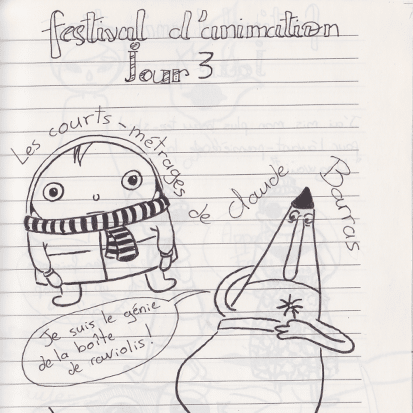 festival d'animation
Jour 3
Les courts-métrages de Claude Barras
Je suis le génie
de la boîte
de raviolis !